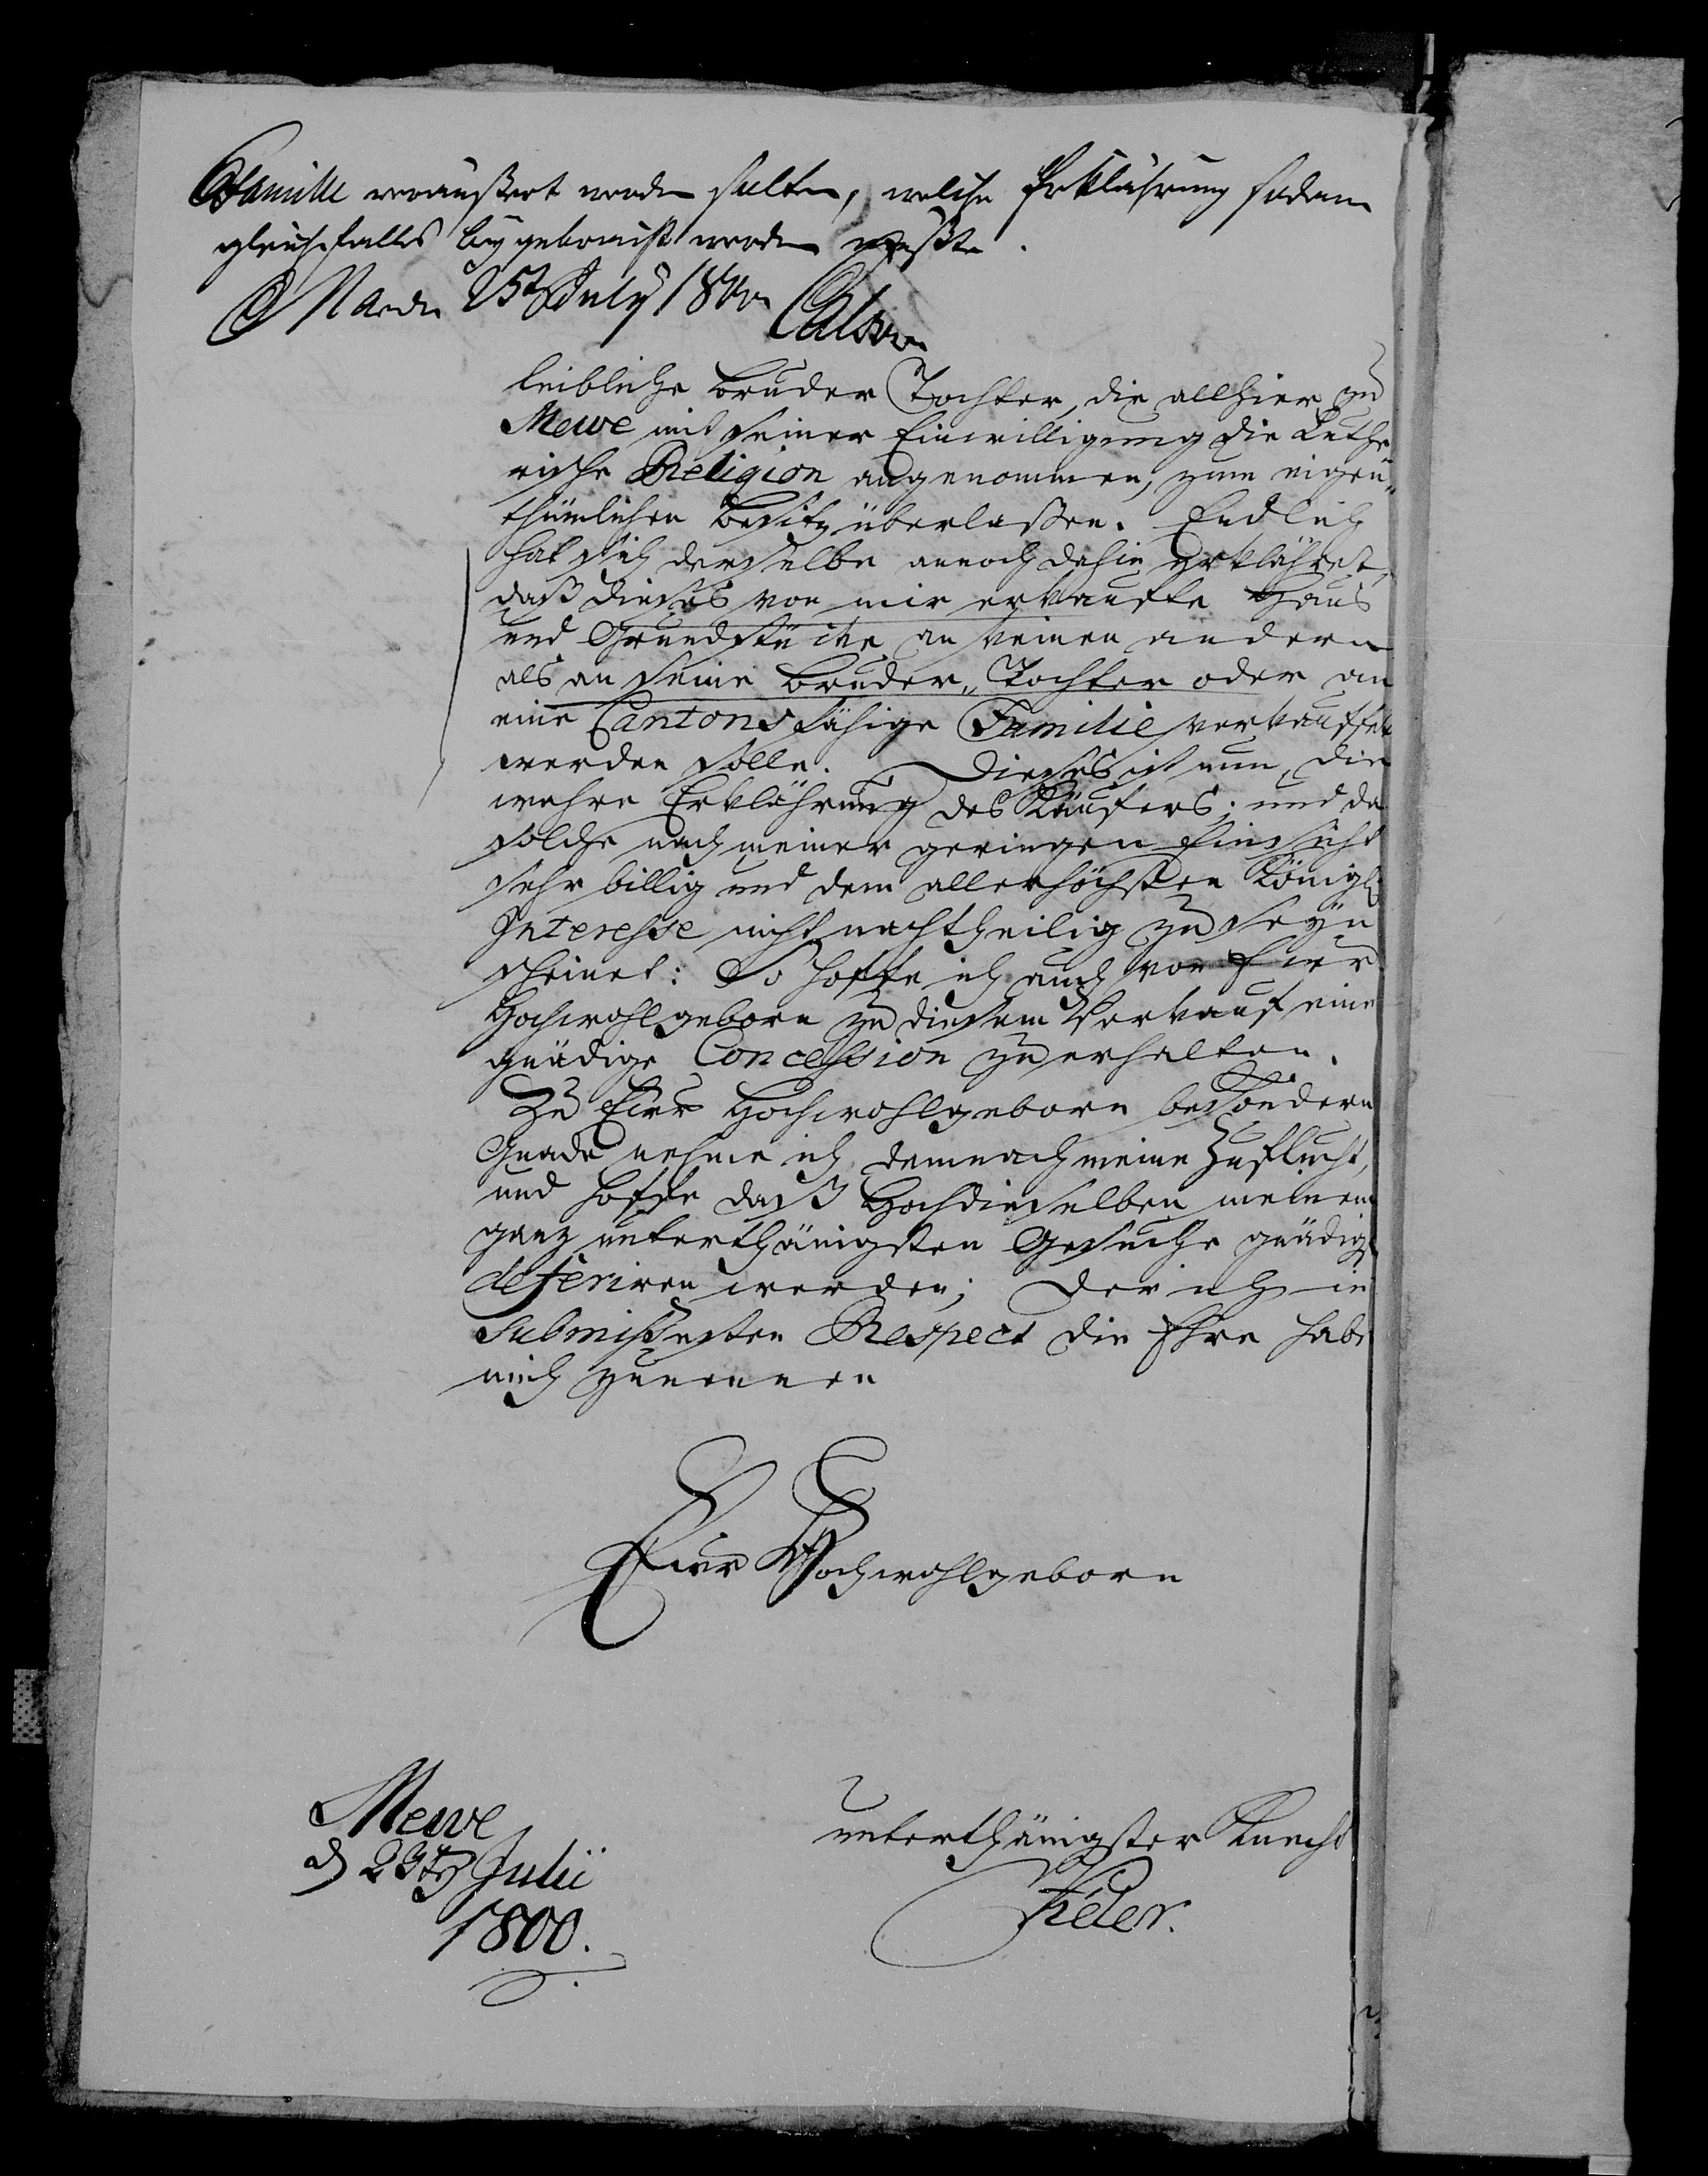 Famille veräußert werden sollten, welche Erklährung sodann
gleichfalls beygebracht werden müßte.
25t July 1800
leibliche Bruder Tochter, die allhier zu
Mewe mit seiner Einwilligung die Luthe
rische Religion angenommen, zum eigen„
thümlichen Besitz überlaßen. Endlich
hat sich derselbe annoch dahin erklähret,
daß dieses von mir erkaufte Haus
und Grundstücke an keinen andern
als an seine Bruder„Tochter oder an
eine Cantons fähige Familie verkauffet
werden solle. Dieses ist nun, die
wahre Erklährung des Käufers; und da
solche nach meiner geringen Einsicht
sehr billig und dem allerhöchsten Königl
Interesse nicht nachtheilig zu seyn
scheinet: So hoffe ich auch von Eur
Hochwohlgeborn zu diesem Verkauf eine
gnädige Concession zu erhalten.
Zu Eur Hochwohlgeborn besondern
Gnade nehme ich demnach meine Zuflucht,
und hoffe daß Hochdieselben meinem
ganz unterthänigsten Gesuche gnädigst
deferiren werden; der ich in
submissesten Respect die Ehre habe
mich zu nennen
Eur Hochwohlgeborn
Mewe
d 29t Julii
1800.
unterthänigster Knecht